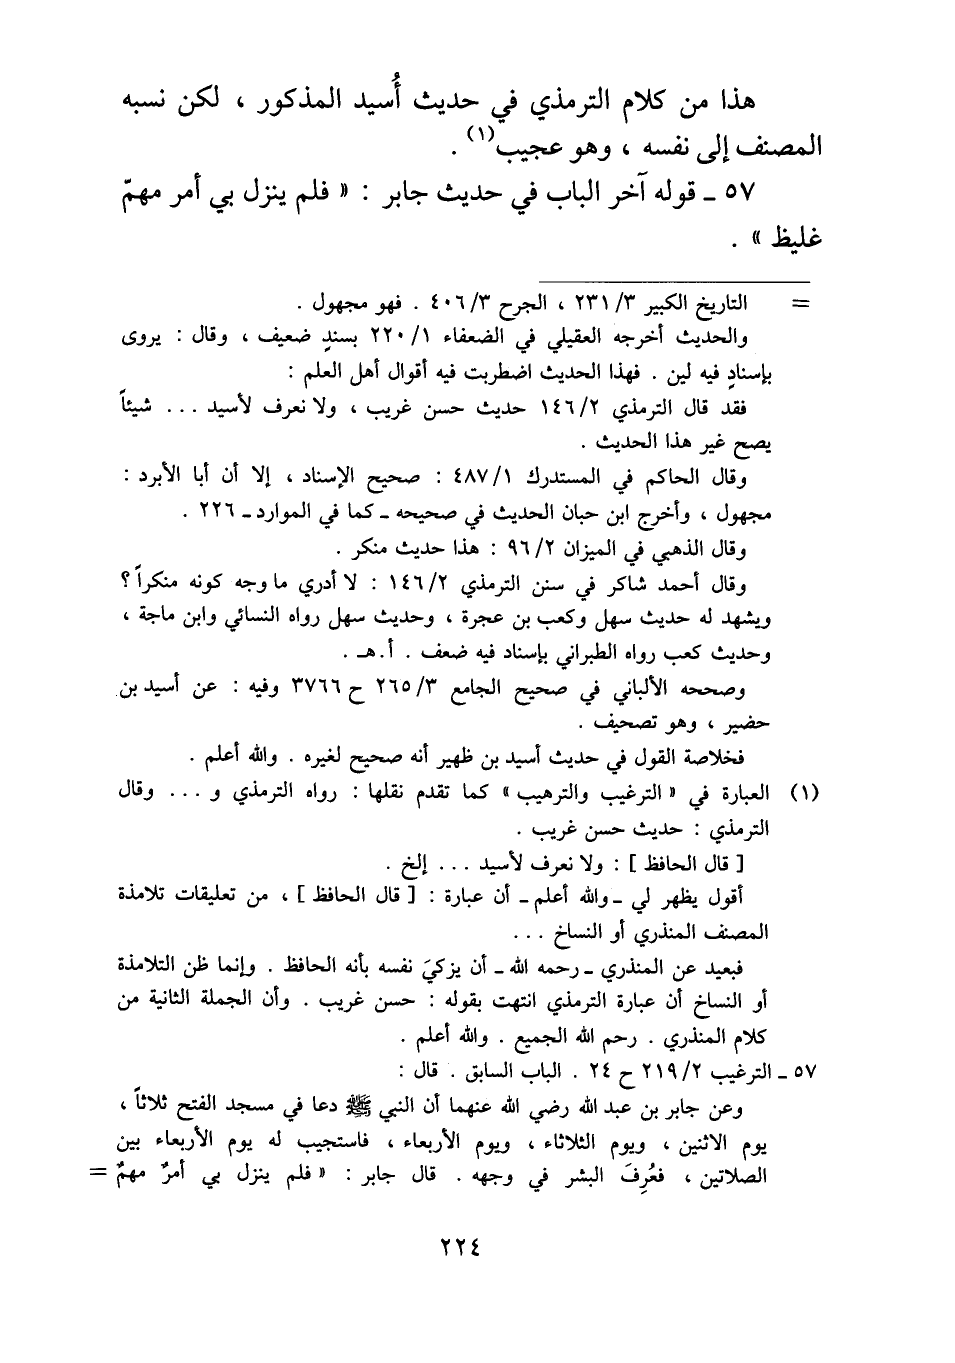 هذا من كلام الترمذي في حديث أُسيد المذكور ، لكن نسبه
المصنف إلى نفسه ، وهو عجيب(١) .
٥٧ ـ قوله آخر الباب في حديث جابر : « فلم ينزل بي أمر مهمّ
غليظ » .
= التاريخ الكبير ٣/ ٢٣١ ، الجرح ٣/ ٤٠٦ . فهو مجهول .
والحديث أخرجه العقيلي في الضعفاء ١/ ٢٢٠ بسندٍ ضعيف ، وقال : يروى
بإسنادٍ فيه لين . فهذا الحديث اضطربت فيه أقوال أهل العلم :
فقد قال الترمذي ٢/ ١٤٦ حديث حسن غريب ، ولا نعرف لأسيد ... شيئاً
يصح غير هذا الحديث .
وقال الحاكم في المستدرك ١/ ٤٨٧ : صحيح الإسناد ، إلا أن أبا الأبرد :
مجهول ، وأخرج ابن حبان الحديث في صحيحه ـ كما في الموارد ـ ٢٢٦ .
وقال الذهبي في الميزان ٢/ ٩٦ : هذا حديث منكر .
وقال أحمد شاكر في سنن الترمذي ٢/ ١٤٦ : لا أدري ما وجه كونه منكراً ؟
ويشهد له حديث سهل وكعب بن عجرة ، وحديث سهل رواه النسائي وابن ماجة ،
وحديث كعب رواه الطبراني بإسناد فيه ضعف . أ.هـ .
وصححه الألباني في صحيح الجامع ٣/ ٢٦٥ ح ٣٧٦٦ وفيه : عن أسيد بن
حضير ، وهو تصحيف .
فخلاصة القول في حديث أسيد بن ظهير أنه صحيح لغيره . والله أعلم .
(١) العبارة في « الترغيب والترهيب » كما تقدم نقلها : رواه الترمذي و ... وقال
الترمذي : حديث حسن غريب .
[ قال الحافظ ] : ولا نعرف لأسيد ... إلخ .
أقول يظهر لي ـ والله أعلم ـ أن عبارة : [ قال الحافظ ] ، من تعليقات تلامذة
المصنف المنذري أو النساخ ...
فبعيد عن المنذري ـ رحمه الله ـ أن يزكيَ نفسه بأنه الحافظ . وإنما ظن التلامذة
أو النساخ أن عبارة الترمذي انتهت بقوله : حسن غريب . وأن الجملة الثانية من
كلام المنذري . رحم الله الجميع . والله أعلم .
٥٧ ـ الترغيب ٢/ ٢١٩ ح ٢٤ . الباب السابق . قال :
وعن جابر بن عبد الله رضي الله عنهما أن النبي ﷺ دعا في مسجد الفتح ثلاثاً ،
يوم الاثنين ، ويوم الثلاثاء ، ويوم الأربعاء ، فاستجيب له يوم الأربعاء بين
الصلاتين ، فعُرِفَ البشر في وجهه . قال جابر : « فلم ينزل بي أمرٌ مهمٌ =
٢٢٤